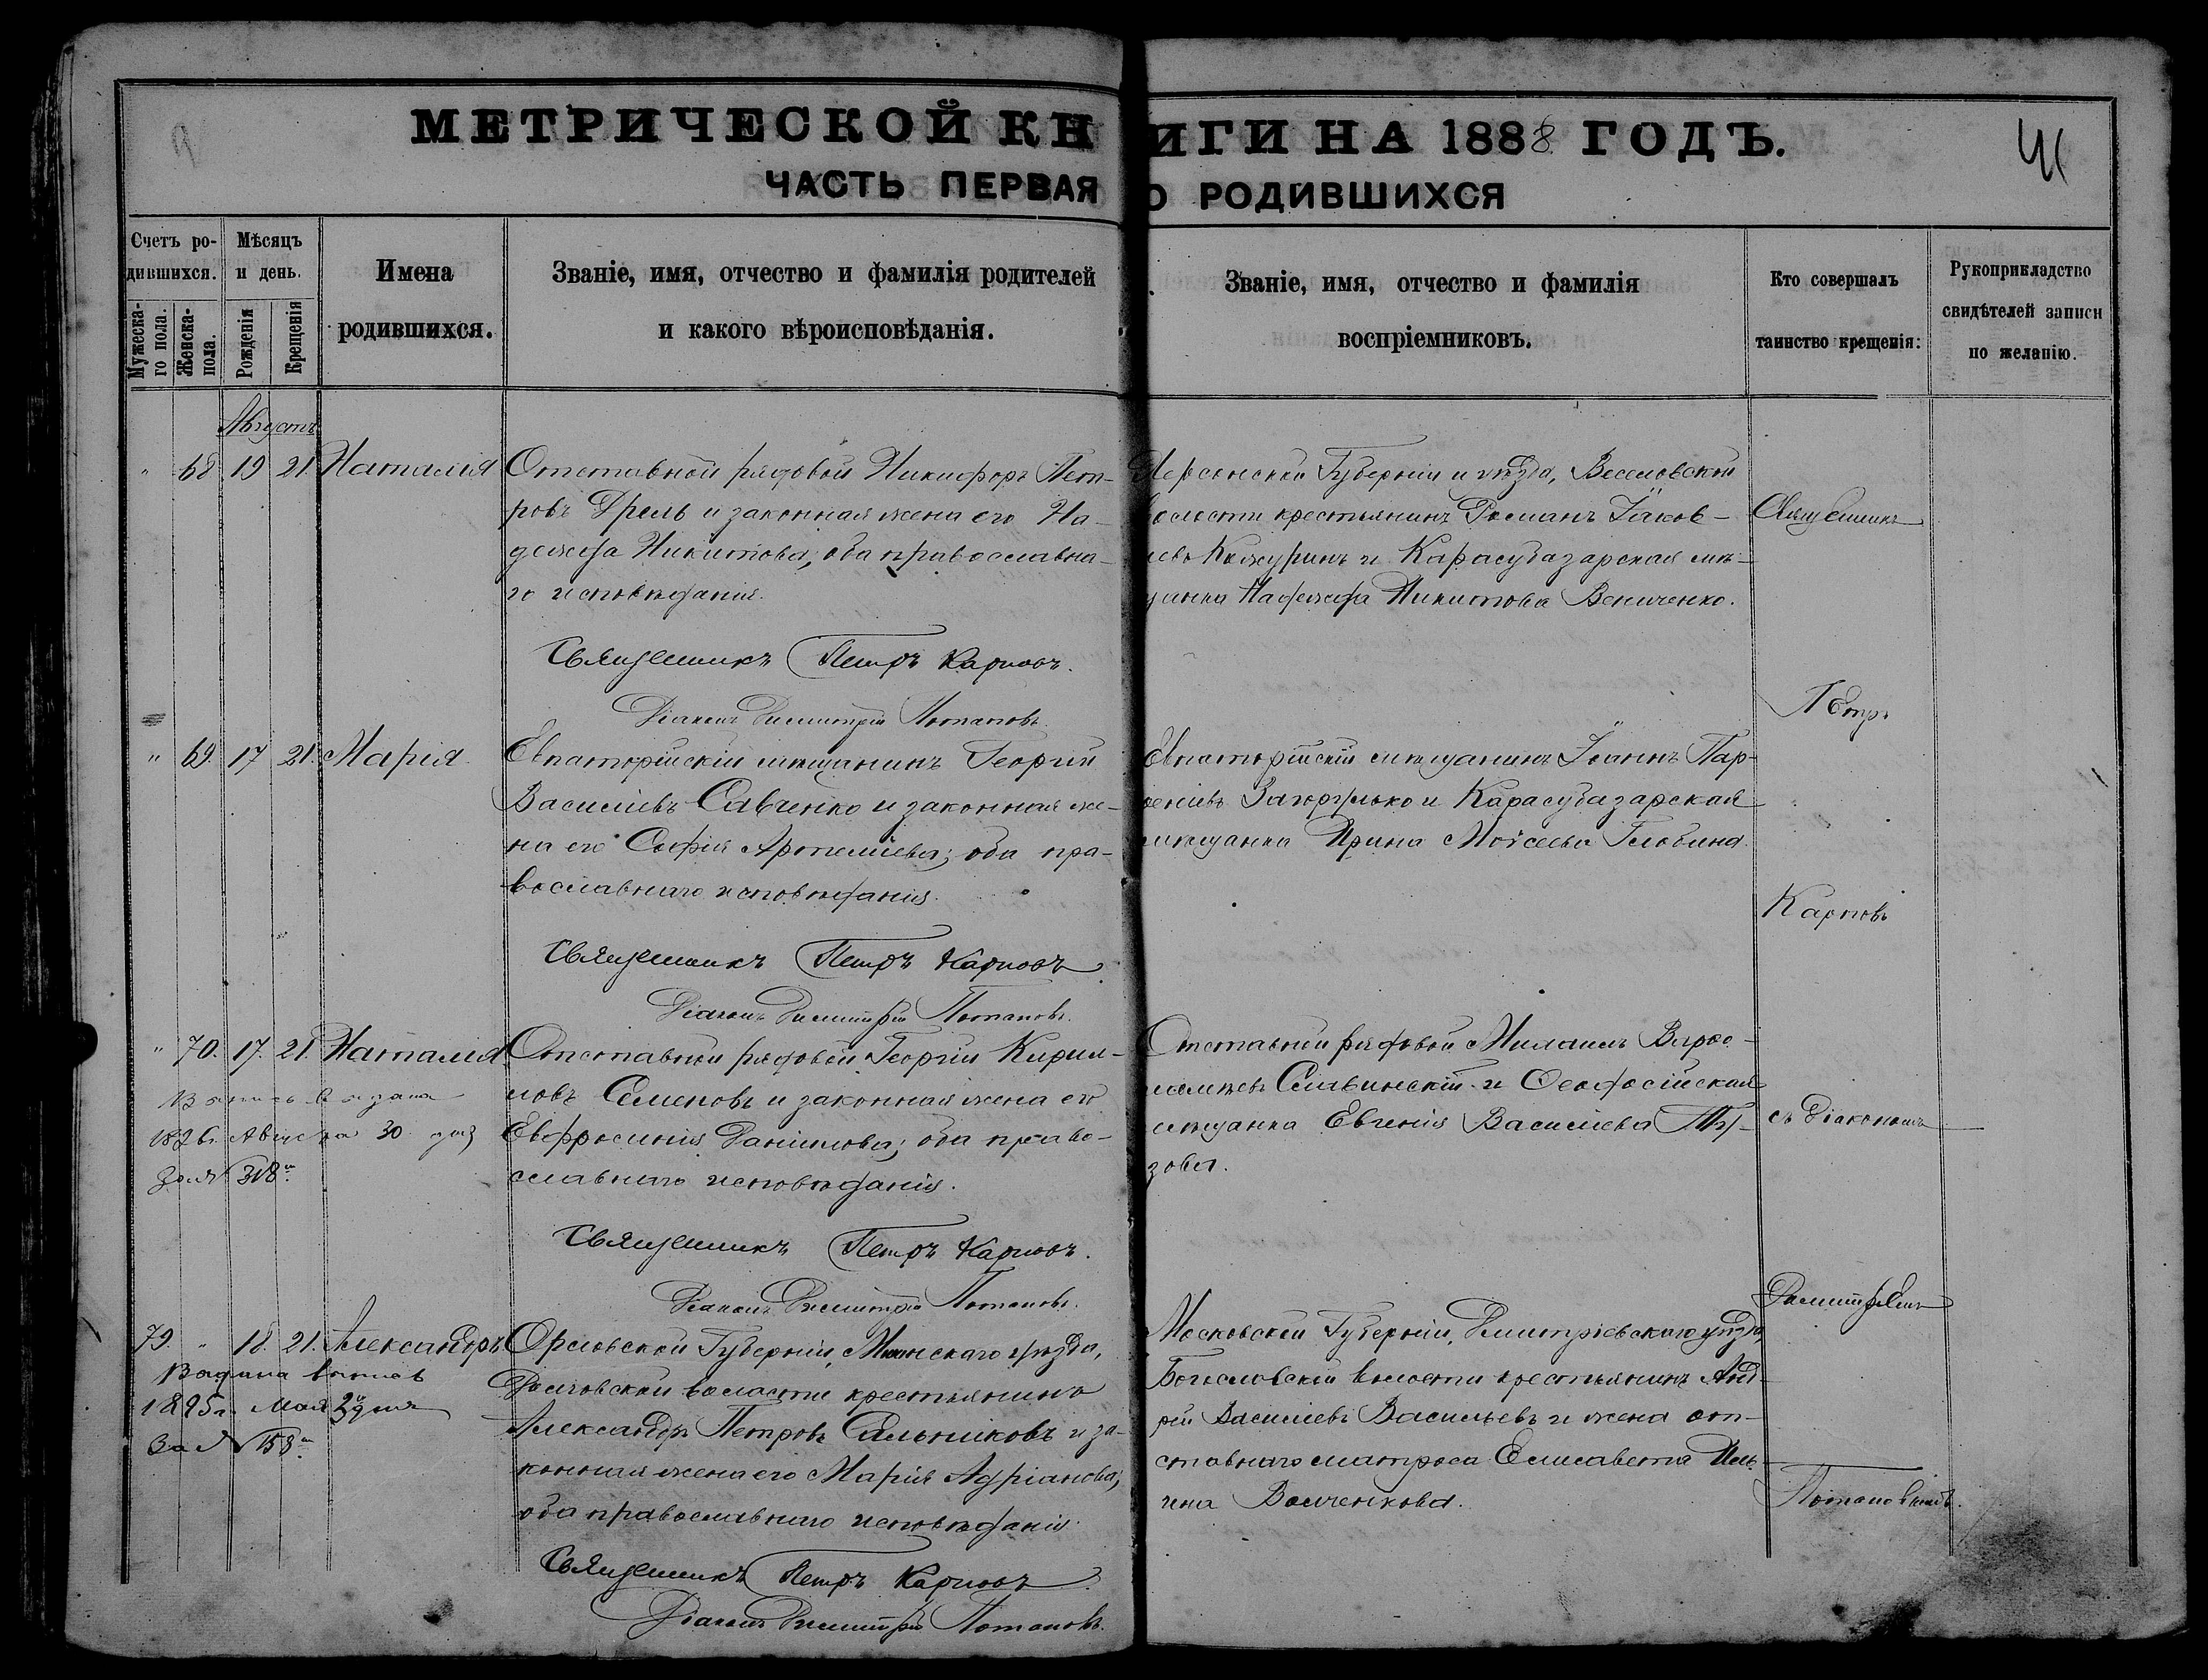 МЕТРИЧЕСКОЙ КНИГИ НА 1888 ГОДЪ.
41
ЧАСТЬ ПЕРВАЯ О РОДИВШИХСЯ
Счетъ родившихся.
Мужеска-го пола.
Женска-пола.
Мѣсяцъ и день.
Рожденія
Крещенія
Имена
родившихся.
Званіе, имя, отчество и фамилія родителей
и какого вѣроисповѣданія.
Званіе, имя, отчество и фамилія
воспріемниковъ.
Кто совершалъ
таинство крещенія:
Рукоприкладство
свидѣтелей записи
по желанію.
Августъ
" 68 19 21. Наталія
Отставной рядовой Никифоръ Пет-
ровъ Грель и законная жена его На-
дежда Никитова; оба православна-
го исповѣданія.
Священникъ Петръ Карповъ.
Діаконъ Димитрій Потаповъ.
Херсонской Губерніи и уѣзда, Веселовской
волости крестьянинъ Романъ Іаков-
левъ Кожуринъ и Карасубазарская мѣ-
щанка Надежда Никитова Вениченко.
" 69. 17 21. Марія.
Евпаторійскій мѣщанинъ Георгій
Василіевъ Савченко и законная же-
на его Софія Артеміева; оба пра-
вославнаго исповѣданія.
Священникъ Петръ Карповъ.
Діаконъ Димитрій Потаповъ.
Евпаторійскій мѣщанинъ Іоаннъ Пар-
ѳеніевъ и Карасубазарская
мѣщанка Ирина Моисеева Глобина.
" 70. 17. 21. Наталія
1896. Августа 30 дня
за № 318м
Отставной рядовой Георгій Кирил-
ловъ Семеновъ и законная жена его
Евфросинія Даніилова; оба право-
славнаго исповѣданія.
Священникъ Петръ Карповъ.
Діаконъ Димитрій Потаповъ.
Отставной рядовой Михаилъ Варѳо-
ломеевъ Славинскій и Ѳеодосійская
мѣщанка Евгенія Василіева
зова.
79. " 18. 21. Александръ
Выдана выпись
1895 г. Мая 29 дня
за № 158м
Орловской Губерніи, Мценскаго уѣзда,
волости крестьянинъ
Александръ Петровъ Сальниковъ и за-
конная жена его Марія Адріанова;
оба православнаго исповѣданія.
Священникъ Петръ Карповъ.
Діаконъ Димитрій Потаповъ.
Московской Губерніи, Дмитріевскаго уѣзда,
Богословской волости крестьянинъ Анд-
рей Василіевъ Васильевъ и жена от-
ставнаго матроса Елисавета Иль-
ина Волченкова.
Священникъ
Петръ
Карповъ
съ Діакономъ
Димитріемъ
Потаповымъ.